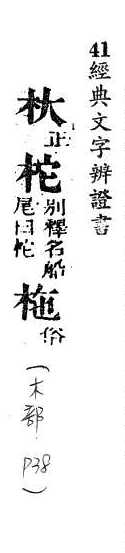 41經典文字辨證書
杕正柁別釋名船尾曰柁柂俗
(木部 P38)